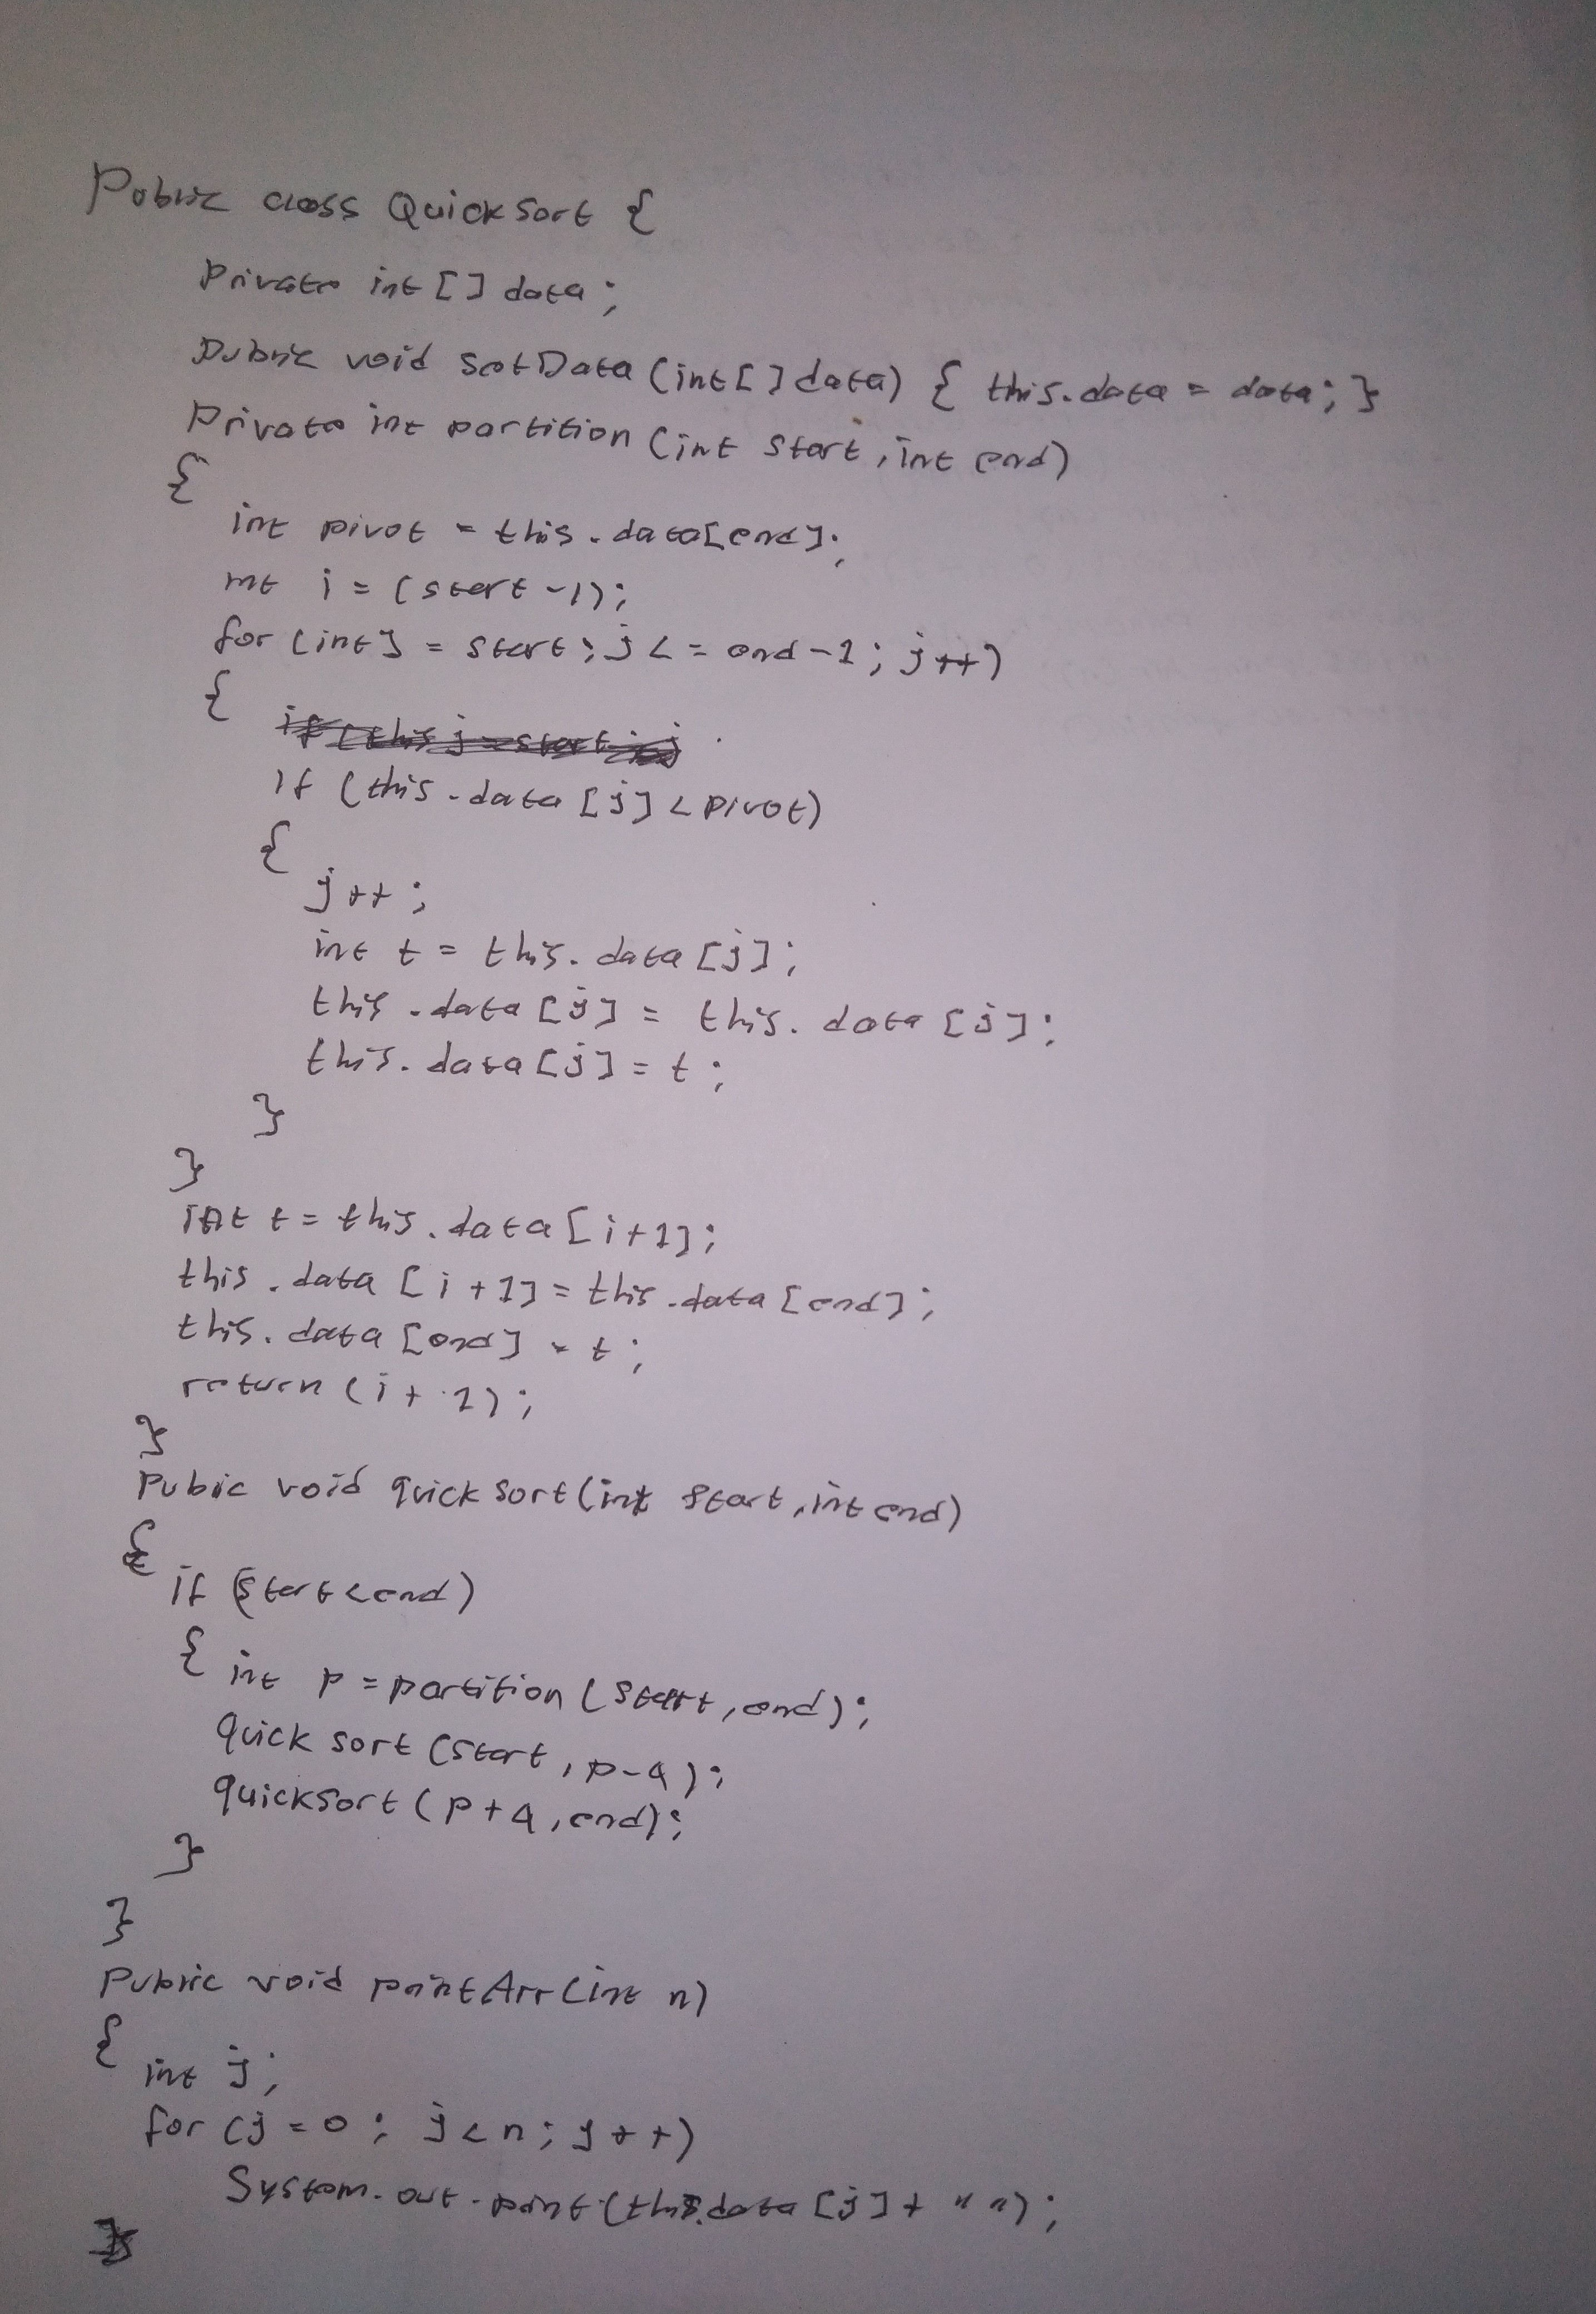 Public class QuickSort {
Private int [] data;
Public void setData (int[] data) { this.data = data; }
Private int partition (int start, int end)
{
int pivot = this.data[end];
int i = (start -1);
for (int j = start; j <= end-1; j++)
{
if (this.data [j] < pivot)
{
j++;
int t = this.data [j];
this.data [j] = this.data [j];
this.data [j] = t;
}
}
int t = this.data [i+1];
this.data [i+1] = this.data [end];
this.data [end] = t;
return (i+1);
}
Pubic void quick sort (int start, int end)
{
if (start < end)
{ int p = partition (start, end);
quick sort (start, p-1);
quicksort (p+1, end);
}
}
Public void printArr (int n)
{
int j;
for (j = 0; j < n; j++)
System.out.print (this.data [j] + " ");
}